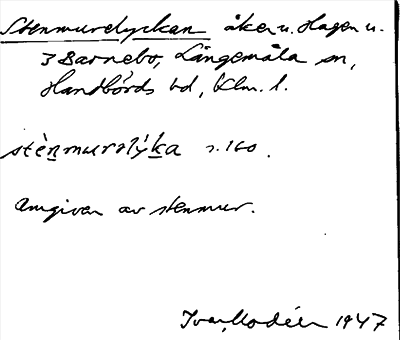 Stenmurslyckan åker u. Hagen u.
3 Barnebo, Långemåla sn,
Handbörds hd, Klm. l.
stènmurslýka s. 160.
Omgiven av stenmur.
Ivar Modéer 1947